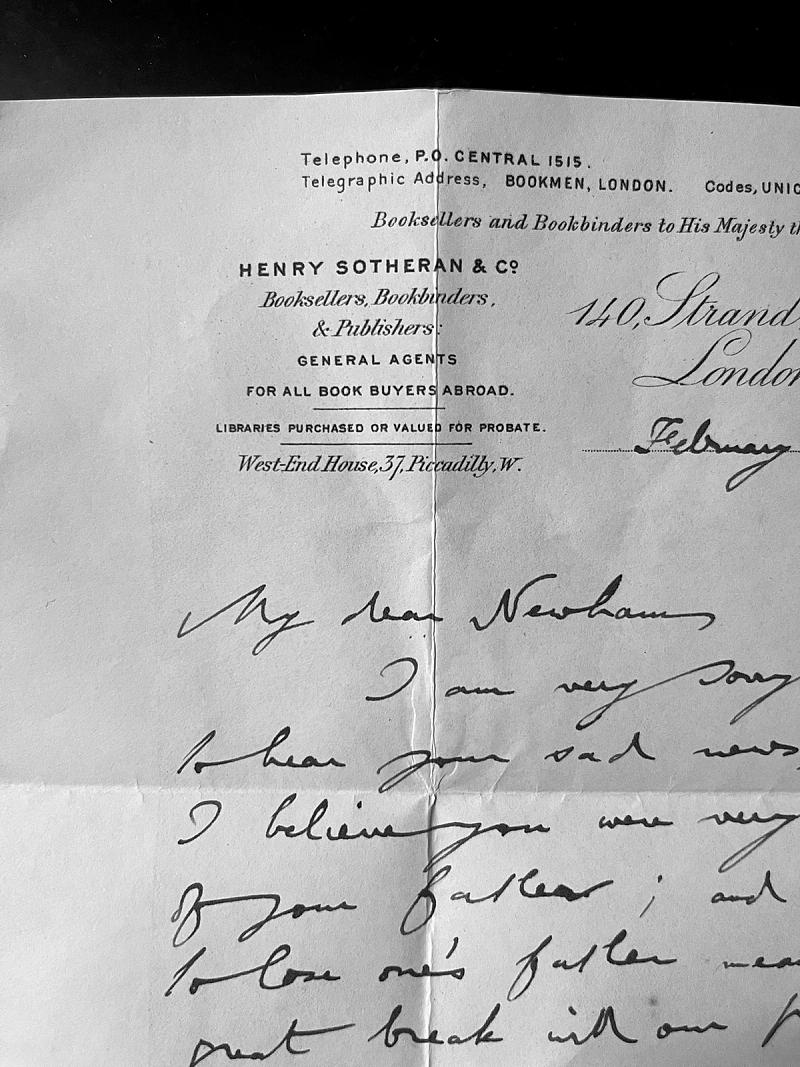 Telephone, P.O. CENTRAL 1515.
Telegraphic Address, BOOKMEN, LONDON. Codes, UNIC
Booksellers and Bookbinders to His Majesty th
HENRY SOTHERAN & Co
Booksellers, Bookbinders,
& Publishers:
GENERAL AGENTS
FOR ALL BOOK BUYERS ABROAD.
LIBRARIES PURCHASED OR VALUED FOR PROBATE.
West-End House, 37, Piccadilly, W.
140, Strand,
London
February
My dear Newham
I am very sorry
to hear your sad news,
I believe you were very
of your father ; and
to lose one's father mea
great break with our p